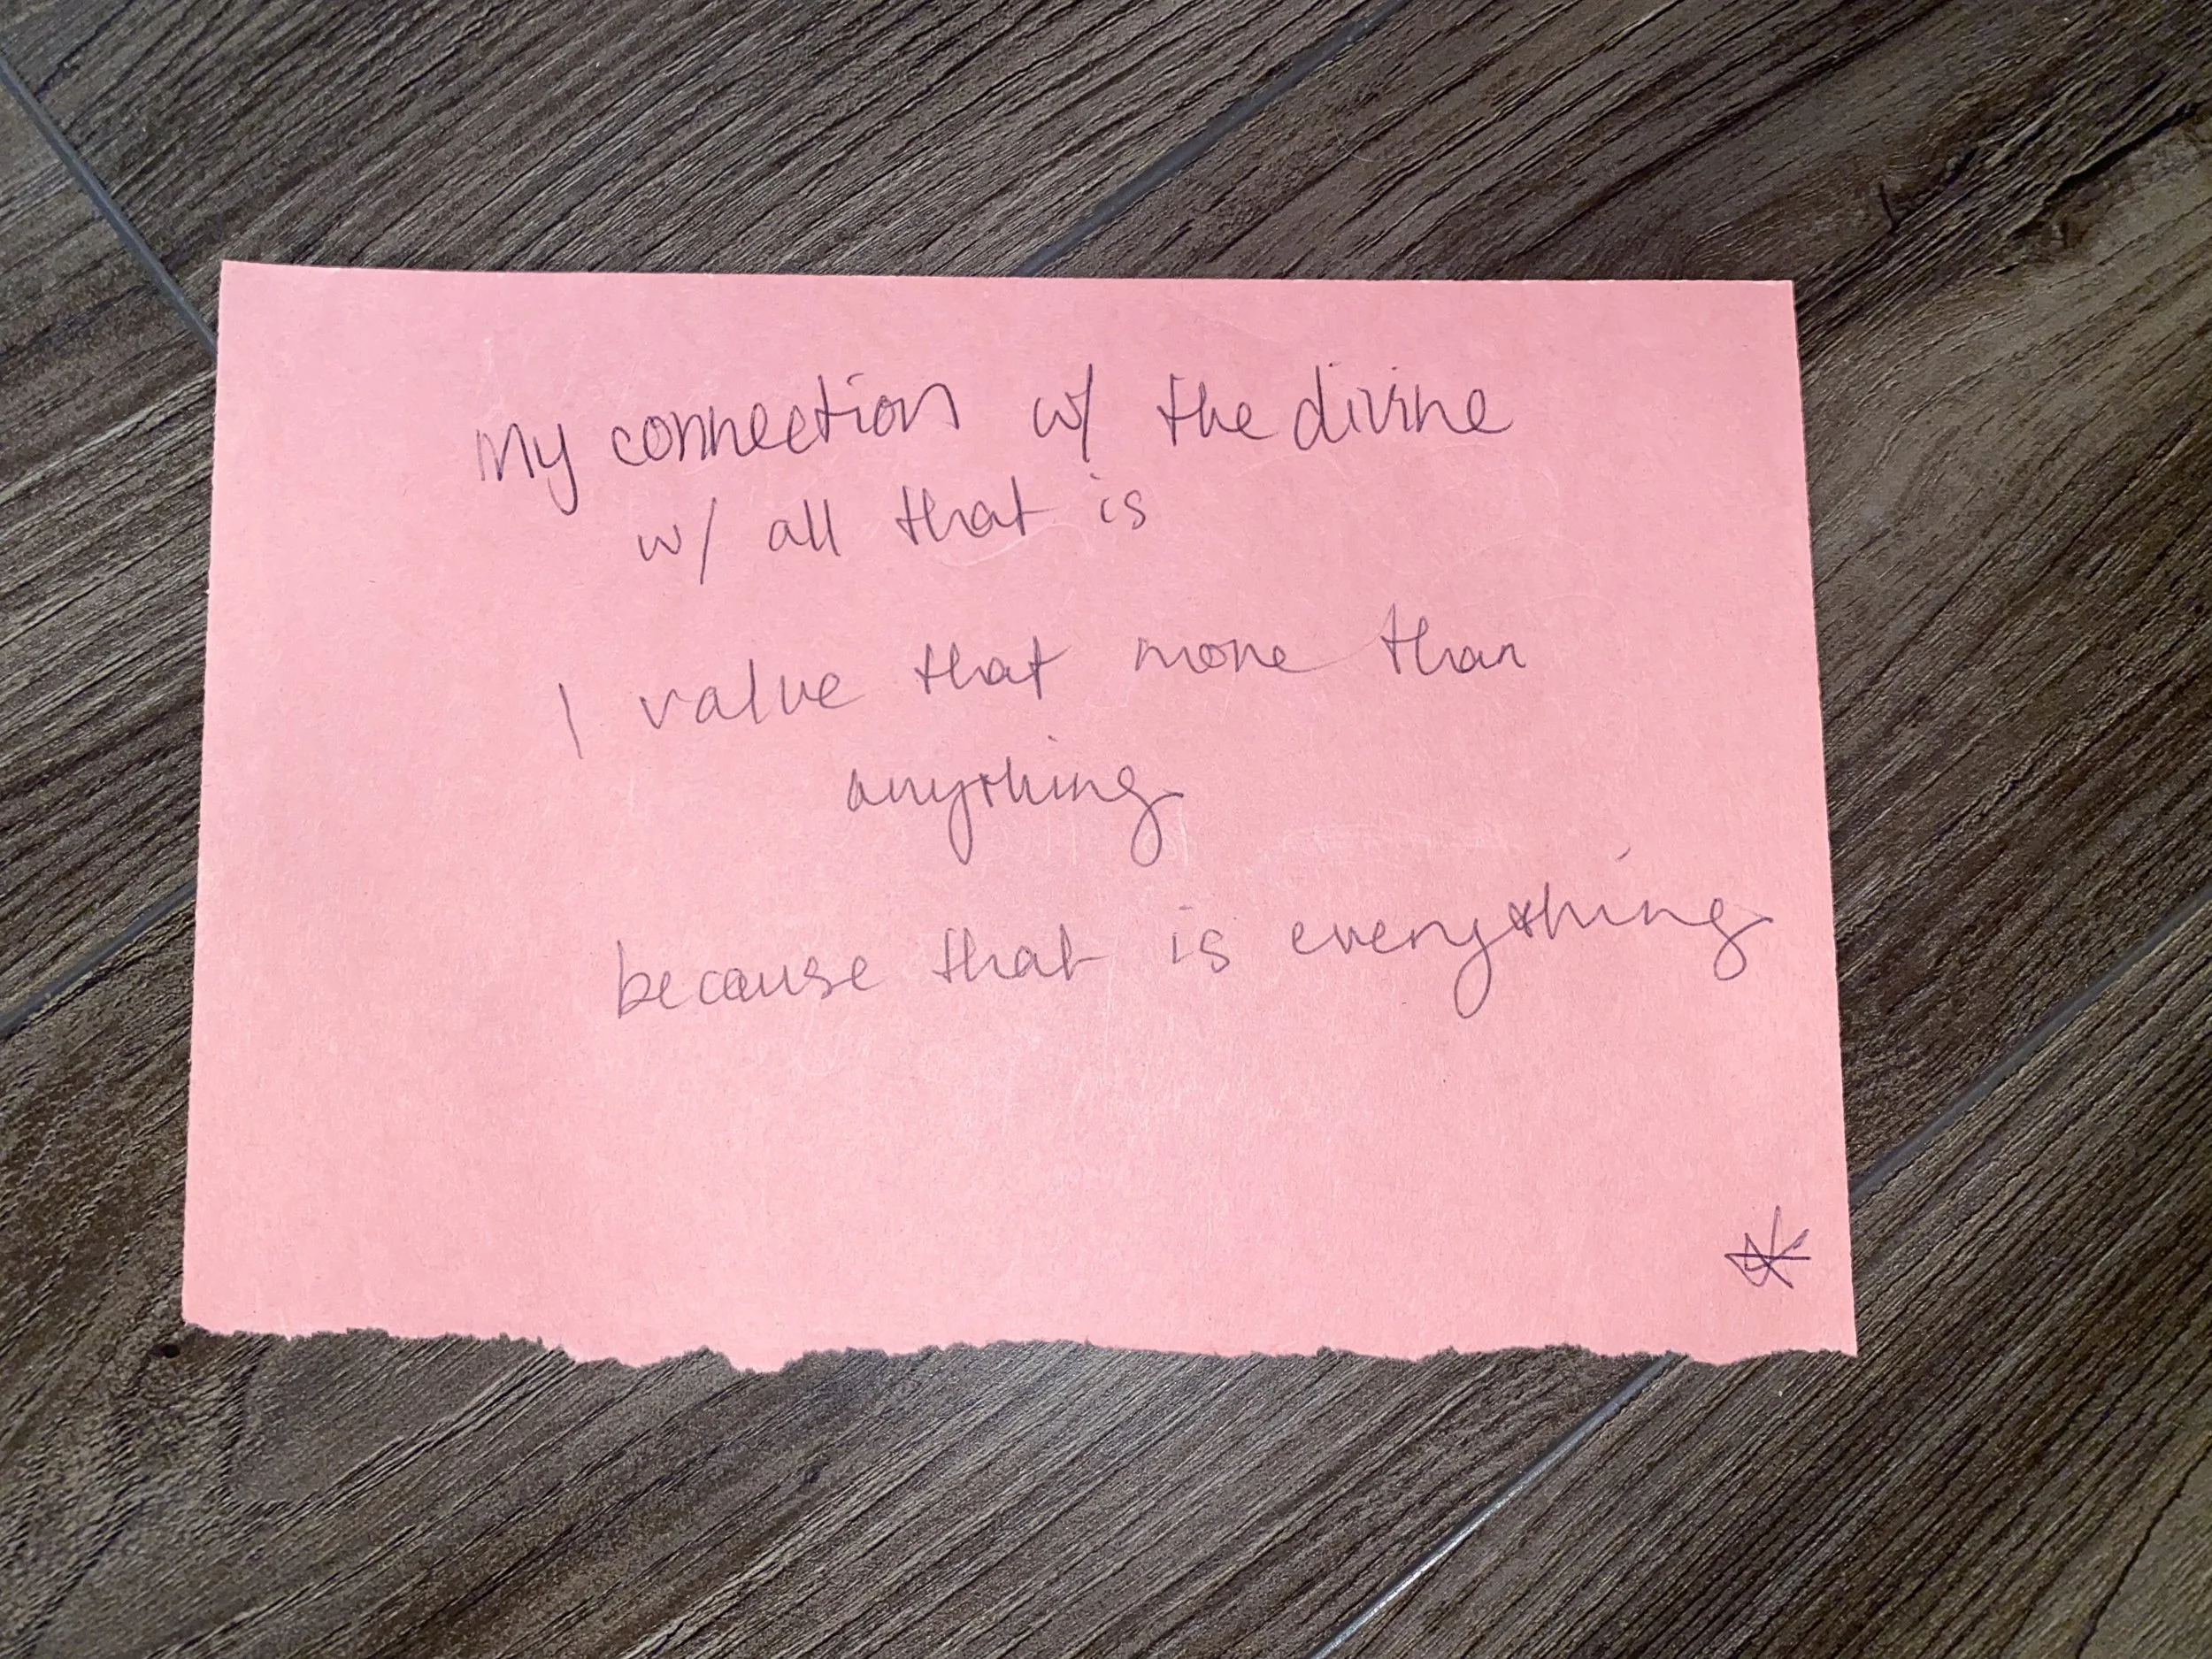 My connection w/ the divine
w/ all that is
I value that more than
anything
because that is everything